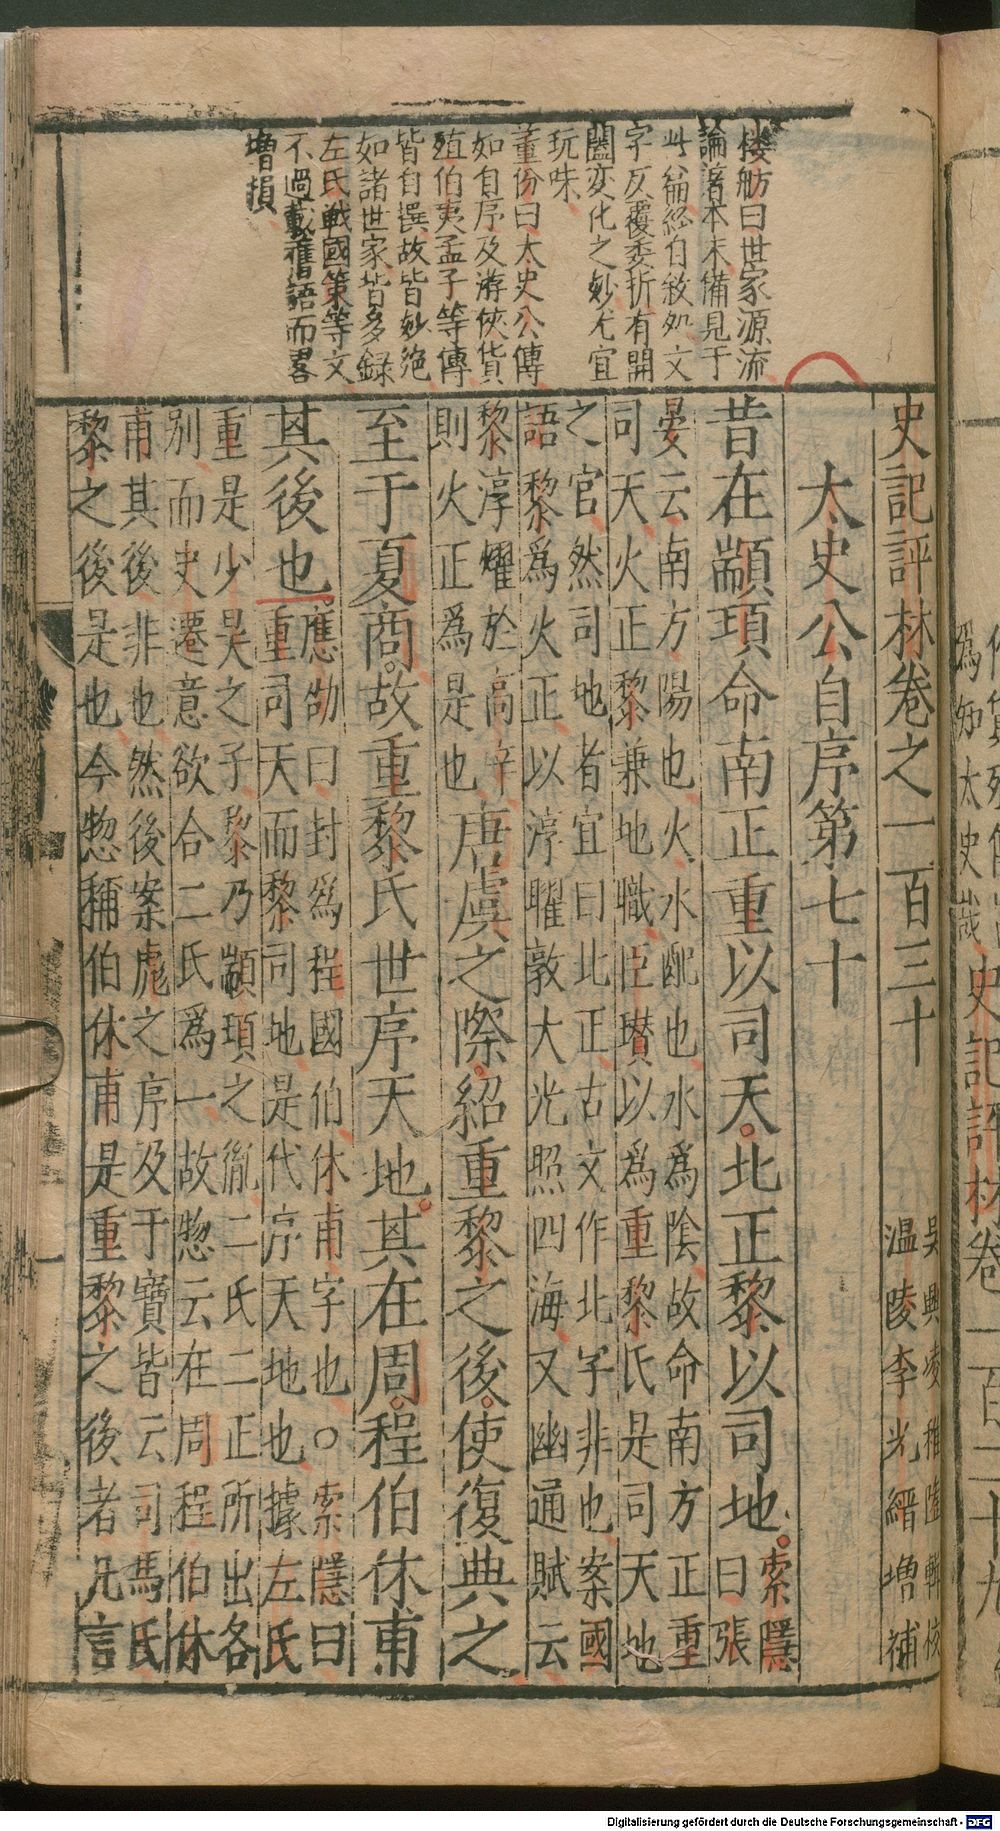 樓昉曰世家源流
論著本末備見于
此篇終自敘處文
字反覆委折有開
闔變化之妙尤宜
玩味
董份曰太史公傳
如自序及游俠貨
殖伯夷孟子等傳
皆自撰故皆妙絶
如諸世家皆多録
左氏戰國策等文
不過載舊語而畧
增損
史記評林卷之一百三十
吳興凌稚隆輯校
溫陵李光縉增補
太史公自序第七十
昔在顓頊命南正重以司天北正黎以司地
索隱
曰張
晏云南方陽也火水配也水爲陰故命南方正重
司天火正黎兼地職臣瓚以爲重黎氏是司天地
之官然司地者宜曰北正古文作北字非也案國
語黎爲火正以淳曜敦大光照四海又幽通賦云
黎淳耀於高辛
則火正爲是也
唐虞之際紹重黎之後使復典之
至于夏商故重黎氏世序天地其在周程伯休甫
其後也
應劭曰封爲程國伯休甫字也〇索隱曰
重司天而黎司地是代序天地也據左氏
重是少昊之子黎乃顓頊之胤二氏二正所出各
別而史遷意欲合二氏爲一故惣云在周程伯休
甫其後非也然後案彪之序及于寶皆云司馬氏
黎之後是也今惣稱伯休甫是重黎之後者凡言
史記評林卷一百二十九
Digitalisierung gefördert durch die Deutsche Forschungsgemeinschaft - DFG